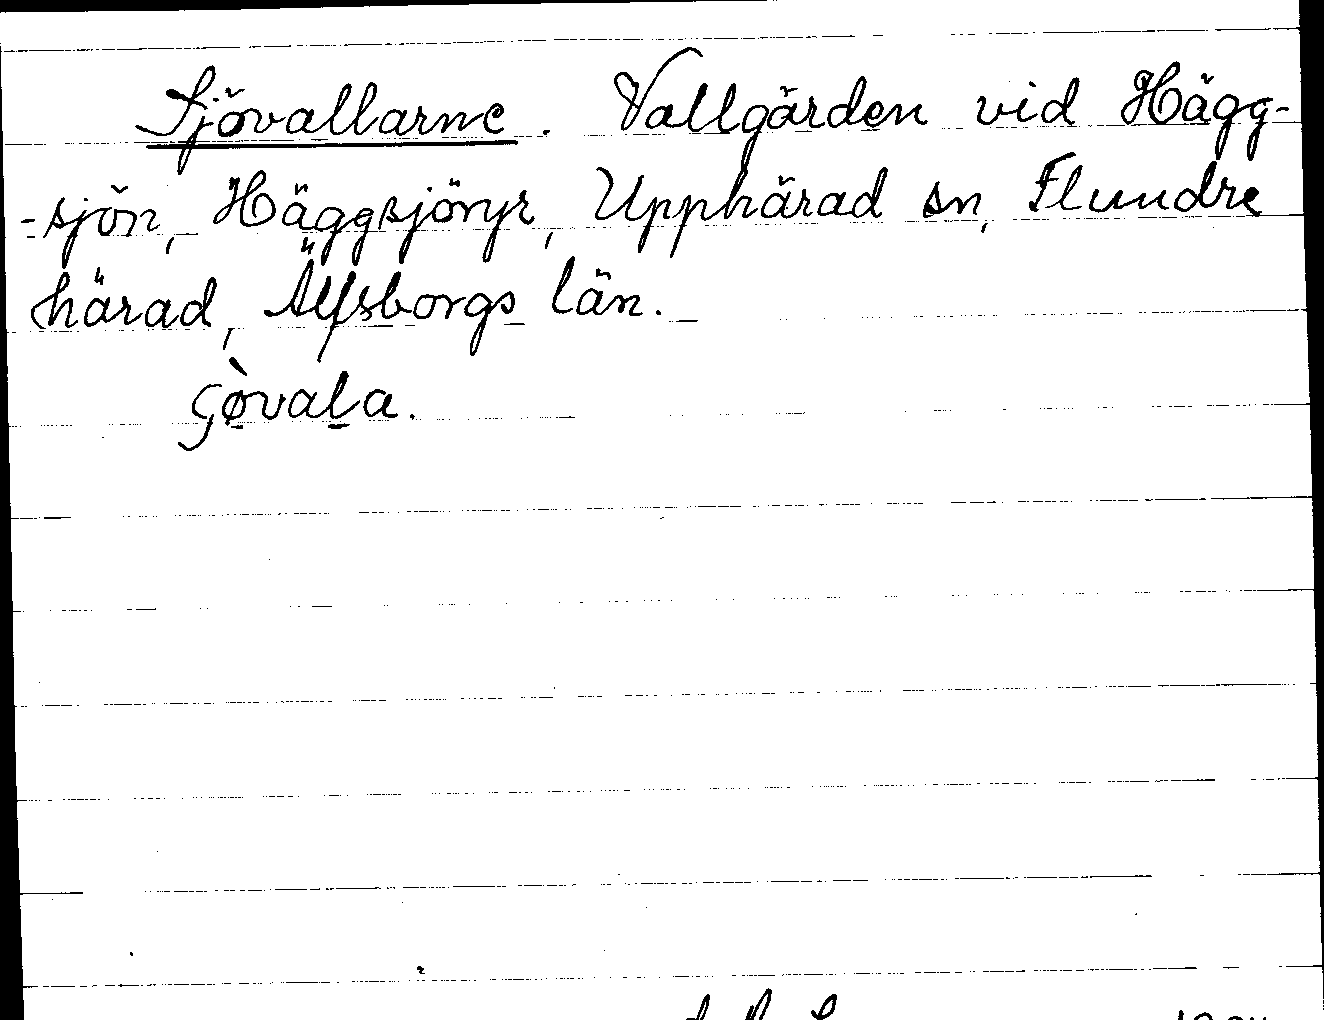 Sjövallarne. Vallgärden vid Hägg-
-sjön, Häggsjöryr, Upphärad sn, Flundre
härad, Älfsborgs län.